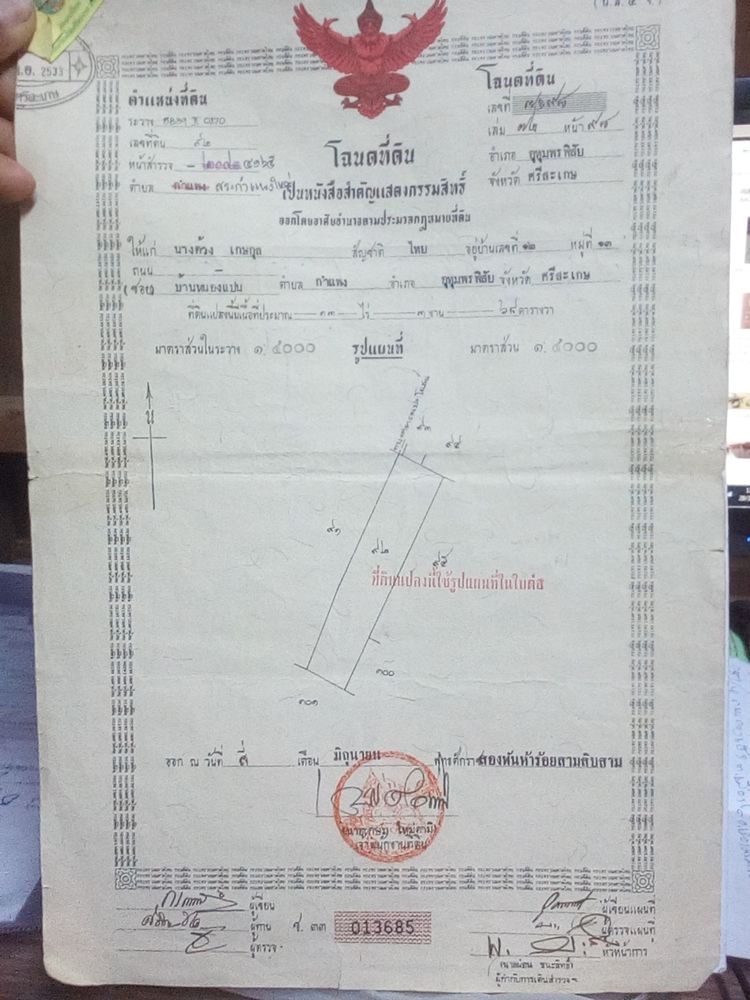 (น.ส. ๔ จ.)
พ.ย. 2533
ตำแหน่งที่ดิน
ระวาง 5839 II 0270
เลขที่ดิน ๙๒
หน้าสำรวจ
ตำบล กำแพง สระกำแพงใหญ่
โฉนดที่ดิน
เลขที่
เล่ม หน้า ๙๗
อำเภอ อุทุมพรพิสัย
จังหวัด ศรีสะเกษ
โฉนดที่ดิน
เป็นหนังสือสำคัญแสดงกรรมสิทธิ์
ออกโดยอาศัยอำนาจตามประมวลกฎหมายที่ดิน
ให้แก่ นางด้วง เกษกุล สัญชาติ ไทย อยู่บ้านเลขที่ ๑๒ หมู่ที่ ๑๓
ถนน
(ซอย) บ้านหนองแปน ตำบล กำแพง อำเภอ อุทุมพรพิสัย จังหวัด ศรีสะเกษ
ที่ดินแปลงนี้มีเนื้อที่ประมาณ ๑๓ ไร่ ๓ งาน ๖๙ ตารางวา
มาตราส่วนในระวาง ๑:๔๐๐๐ รูปแผนที่ มาตราส่วน ๑:๔๐๐๐
น
๙๓
๙๔
๙๑
๙๒
๙๕
ที่ดินแปลงนี้ใช้รูปแผนที่ในใบต่อ
๑๐๐
๑๐๑
ออก ณ วันที่ สี่ เดือน มิถุนายน พุทธศักราช สองพันห้าร้อยสามสิบสาม
เจ้าพนักงานที่ดิน
ผู้เขียน
ผู้ทาน
ผู้ตรวจ
ช. ๓๓ 013685
ผู้เขียนแผนที่
ผู้ตรวจแผนที่
หัวหน้าการ
ผู้กำกับการเดินสำรวจฯ